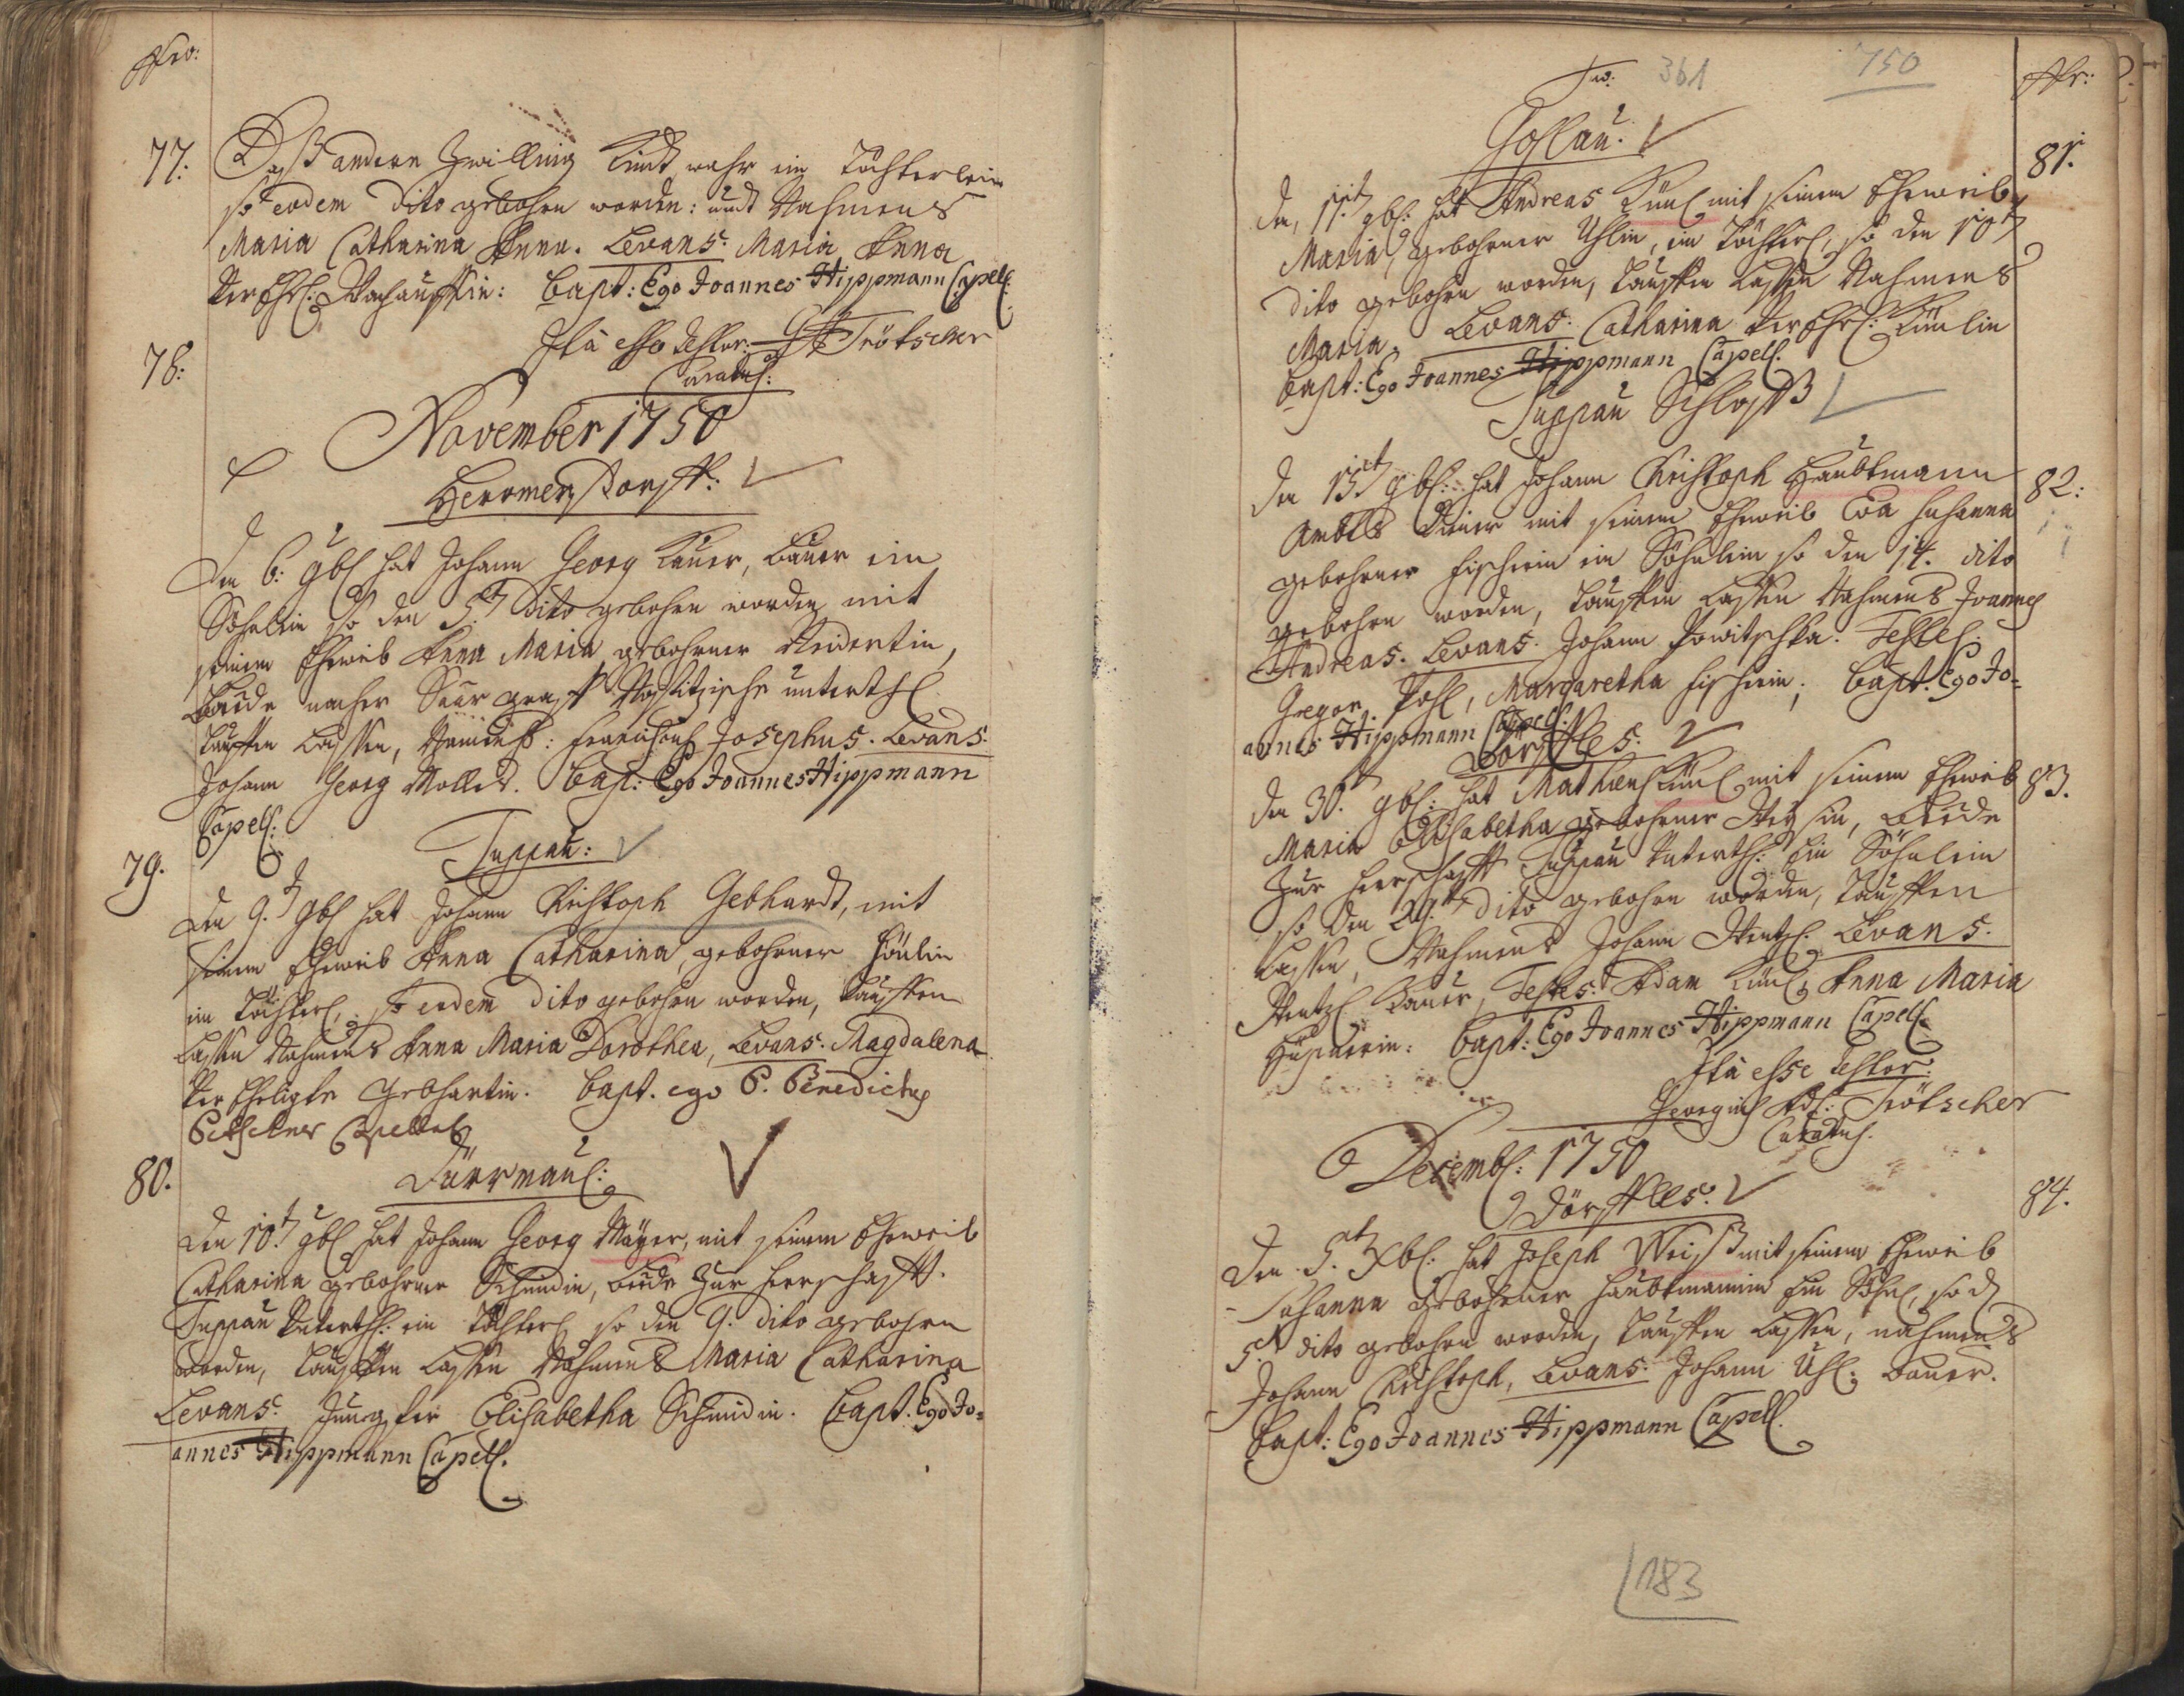 Nro:
77. Daß andern Zwilling Kindt wahr ein Töchterlein
so eodem dito gebohrn worden: undt Nahmens
Maria Catharina Anna. Levans: Maria Anna
bapt: Ego Joannes Hippmann Capell:
Ita esse testor: Trötscher
Curatus:
78:
November 1750
Hermerstorff:
Den 6: 9bl hat Johann Georg Bauer, Bauer ein
Söhnlein so den 5t dito gebohrn worden mit
seinem Eheweib Anna Maria gebohrner Neidertin,
Beide unterthl
tauffen lassen, Josephus. Levans:
Johann Georg Bapt: Ego Joannes Hippmann
Capell:
Duppau:
79. Den 9.t 9bl hat Johann Christoph Gebhardt, mit
seinem Eheweib Anna Catharina, gebohrner
ein Töchterl, so eodem dito gebohrn worden, tauffen
lassen Nahmens Anna Maria Dorothea, Levans: Magdalena
Gebhartin. bapt. ego P. Benedictus
Capellan
80. Dürrmaul:
Den 10.t 9bl hat Johann Georg Mayer, mit seinem Eheweib
Catharina gebohrner Schmidin, beide zur Herrschafft
Duppau Unterth: ein Töchterl so den 9. dito gebohrn
worden, tauffen lassen Nahmens Maria Catharina
Levans: Jungfer Elisabetha Schmidin. bapt: Ego Jo=
annes Hippmann Capell.
361 750
Nr:
81.
Den 11t 9bl: hat Andreas mit seinem Eheweib
Maria, gebohrner Uhlin, ein Töchterl, so den 10t
dito gebohrn worden, tauffen lassen Nahmens
Maria. Levans: Catharina
bapt: Ego Joannes Hippmann Capell.
Duppau Schloß
82: Den 15t 9bl: hat Johann Christoph Haubtmann
Ambts Diener mit seinem Eheweib Eva Susanna
gebohrner Fischerin ein Söhnlein so den 14. dito
gebohrn worden, tauffen lassen Nahmens Joannes
Andreas. Levans: Johann Powitschka. Testes:
Gregor Pohl, Margaretha Fischerin; bapt: Ego Jo=
annes Hippmann Capell:
Dörffles:
83. Den 30.t 9bl: hat Mathias mit seinem Eheweib
Maria Elisabetha gebohrner beide
Zur Herrschafft Duppau Unterth: Ein Söhnlein
so den 29.t dito gebohrn worden, tauffen
lassen, Nahmens Johann Wentzl Levans:
Wentzl Bauer, Testes: Adam Anna Maria
bapt: Ego Joannes Hippmann Capell.
Ita esse testor:
Georgius Ad: Trötscher
Curatus.
Decembl: 1750
Dörffles:
84. Den 5.t Xbl: hat Joseph Weiß mit seinem Eheweib
Susanna gebohrner Haubtmannin Ein Söhnl, so d
5.t dito gebohrn worden, tauffen lassen, nahmens
Johann Christoph, Levans: Johann Uhl. Bauer.
bapt: Ego Joannes Hippmann Capell.
183